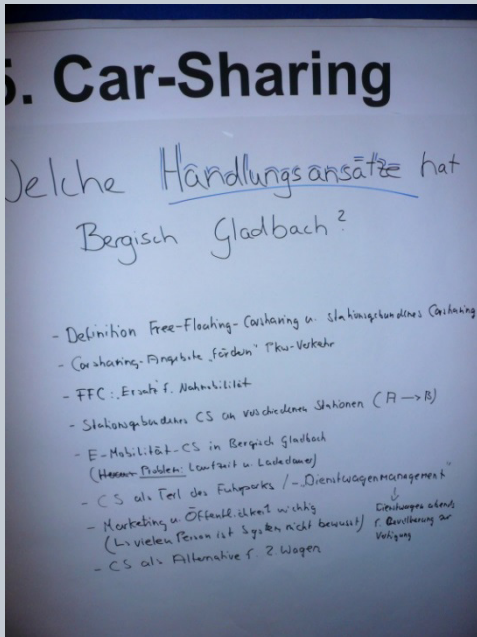 5. Car-Sharing
Welche Handlungsansätze hat
Bergisch Gladbach?
- Definition Free-Floating-Carsharing u. stationsgebundenes Carsharing
- Carsharing-Angebote „fördern“ Pkw-Verkehr
- FFC: Ersatz f. Nahmobilität
- Stationsgebundenes CS an verschiedenen Stationen (A → B)
- E-Mobilität-CS in Bergisch Gladbach
(Problem: Laufzeit u. Ladedauer)
- CS als Teil des Fuhrparks / -„Dienstwagenmanagement“
- Marketing u. Öffentlichkeit wichtig
(↳ vielen Person ist System nicht bewusst)
Dienstwagen abends
f. Bevölkerung zur
Verfügung
- CS als Alternative f. 2. Wagen